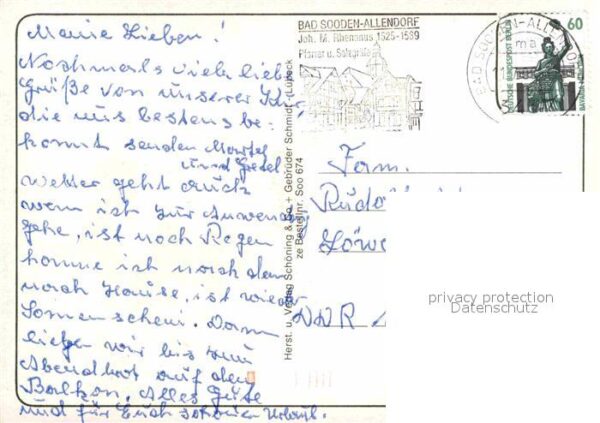 Meine Lieben!
Nochmals viele liebe
Grüße von unserer Kur
die uns bestens be-
kommt senden
und Gretel
Wetter geht auch
wenn ich zur Anwendung
gehe, ist noch Regen
komme ich nach dem
nach Hause, ist wieder
Sonnenschein. Dann
liegen wir bis zum
Abendbrot auf dem
Balkon. Alles Gute
und für Euch schönen Urlaub.
BAD SOODEN-ALLENDORF
Joh. M. Rhenanus 1525-1589
Pfarrer u. Salzgräfe
BAD SOODEN-ALLENDORF
60
DEUTSCHE BUNDESPOST BERLIN
Herst. u. Verlag Schöning & Co. + Gebrüder Schmidt · Lübeck
ze Bestellnr. Soo 674
Fam.
DDR
privacy protection
Datenschutz